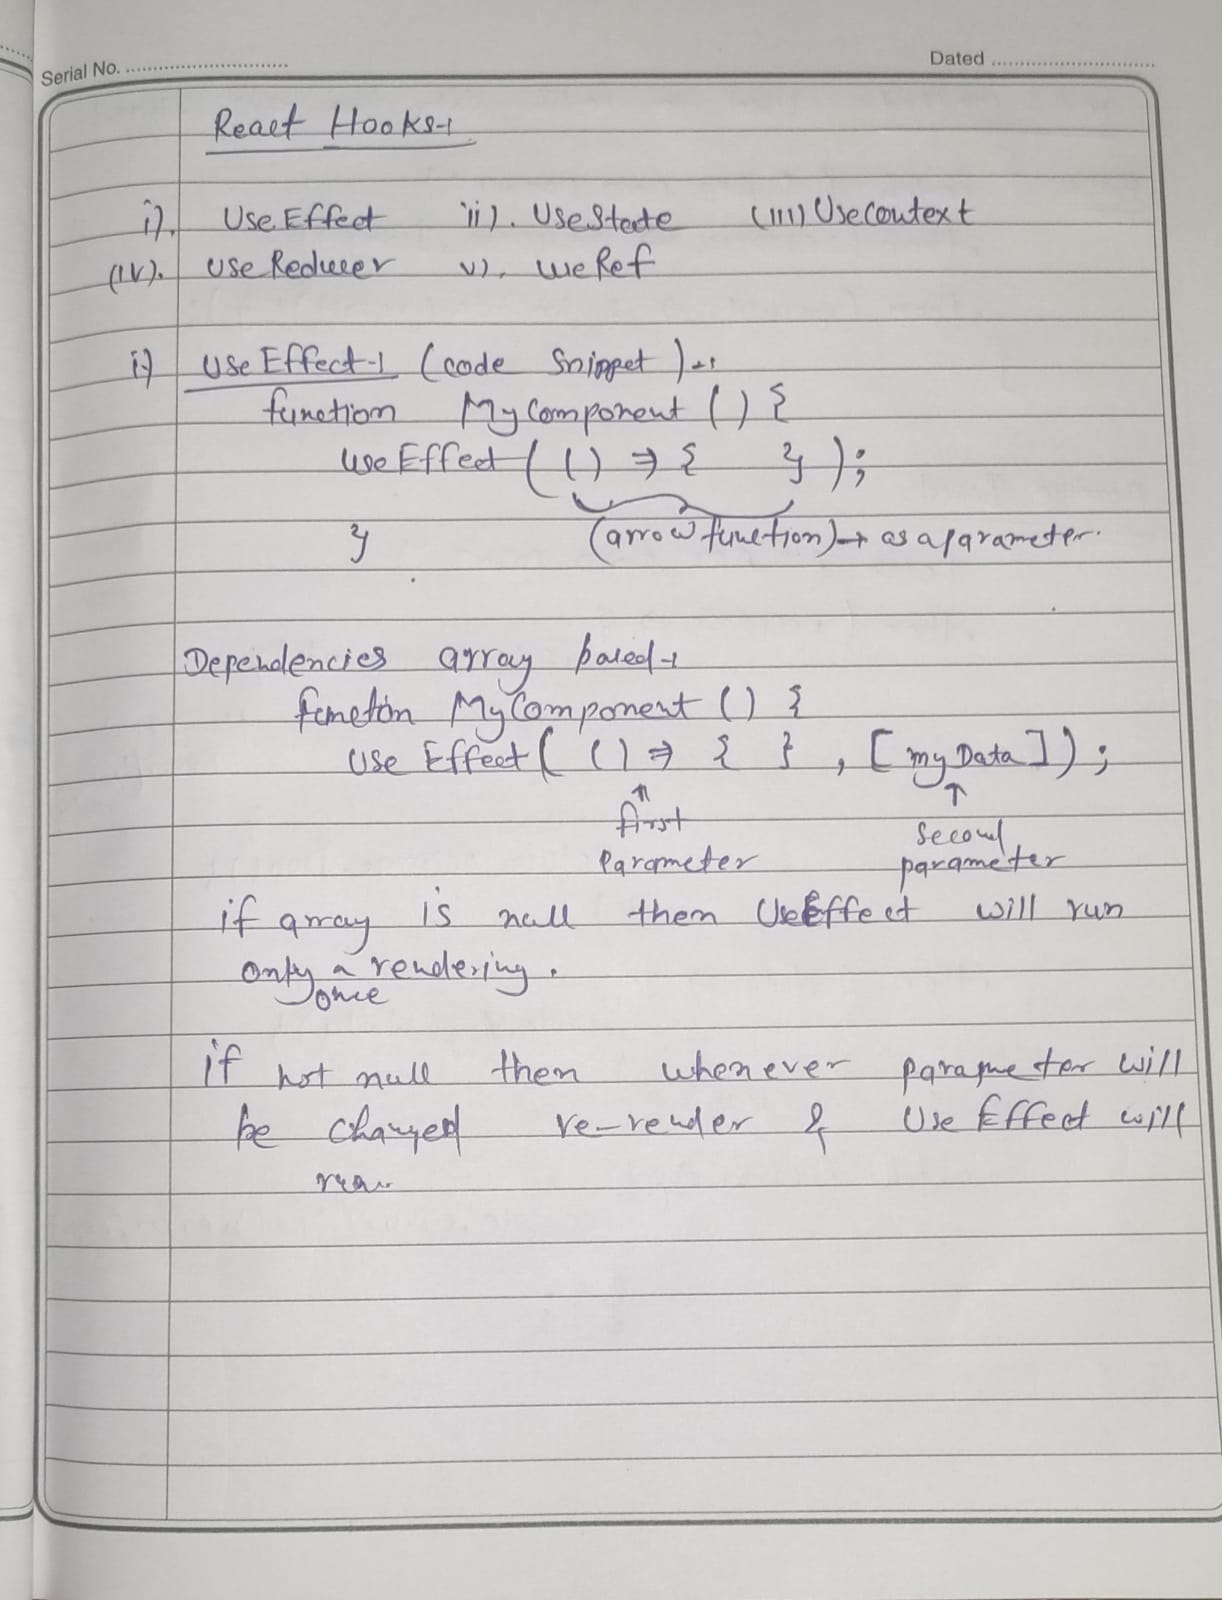 Serial No. Dated
React Hooks-1
i). Use Effect ii). UseState (III) Usecontext
(IV). Use Reducer v). useRef
i-) Use Effect-1 (code Snippet)-1
function MyComponent () {
useEffect ( () => { } );
} (arrow function) → as a parameter.
Dependencies array based-1
function MyComponent () {
Use Effect ( () => { } , [myData]);
↑ ↑
first Second
Parameter parameter
if array is null then UseEffect will run
only a rendering.
once
if not null then whenever parameter will
be changed re-render & Use Effect will
run